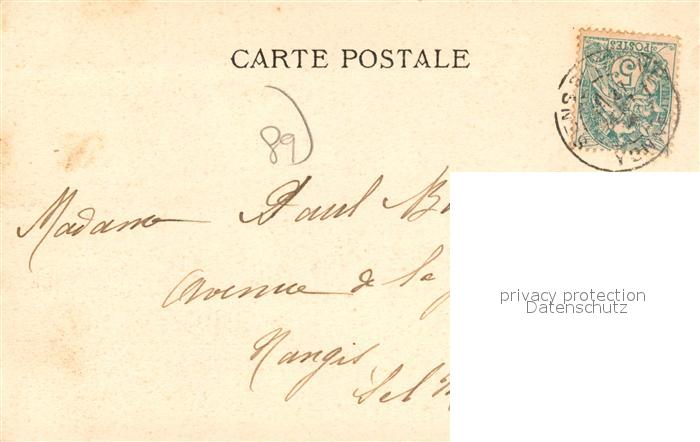 CARTE POSTALE
POSTES
5
SENS
89
Madame Paul
Avenue de la
Nangis
privacy protection
Datenschutz